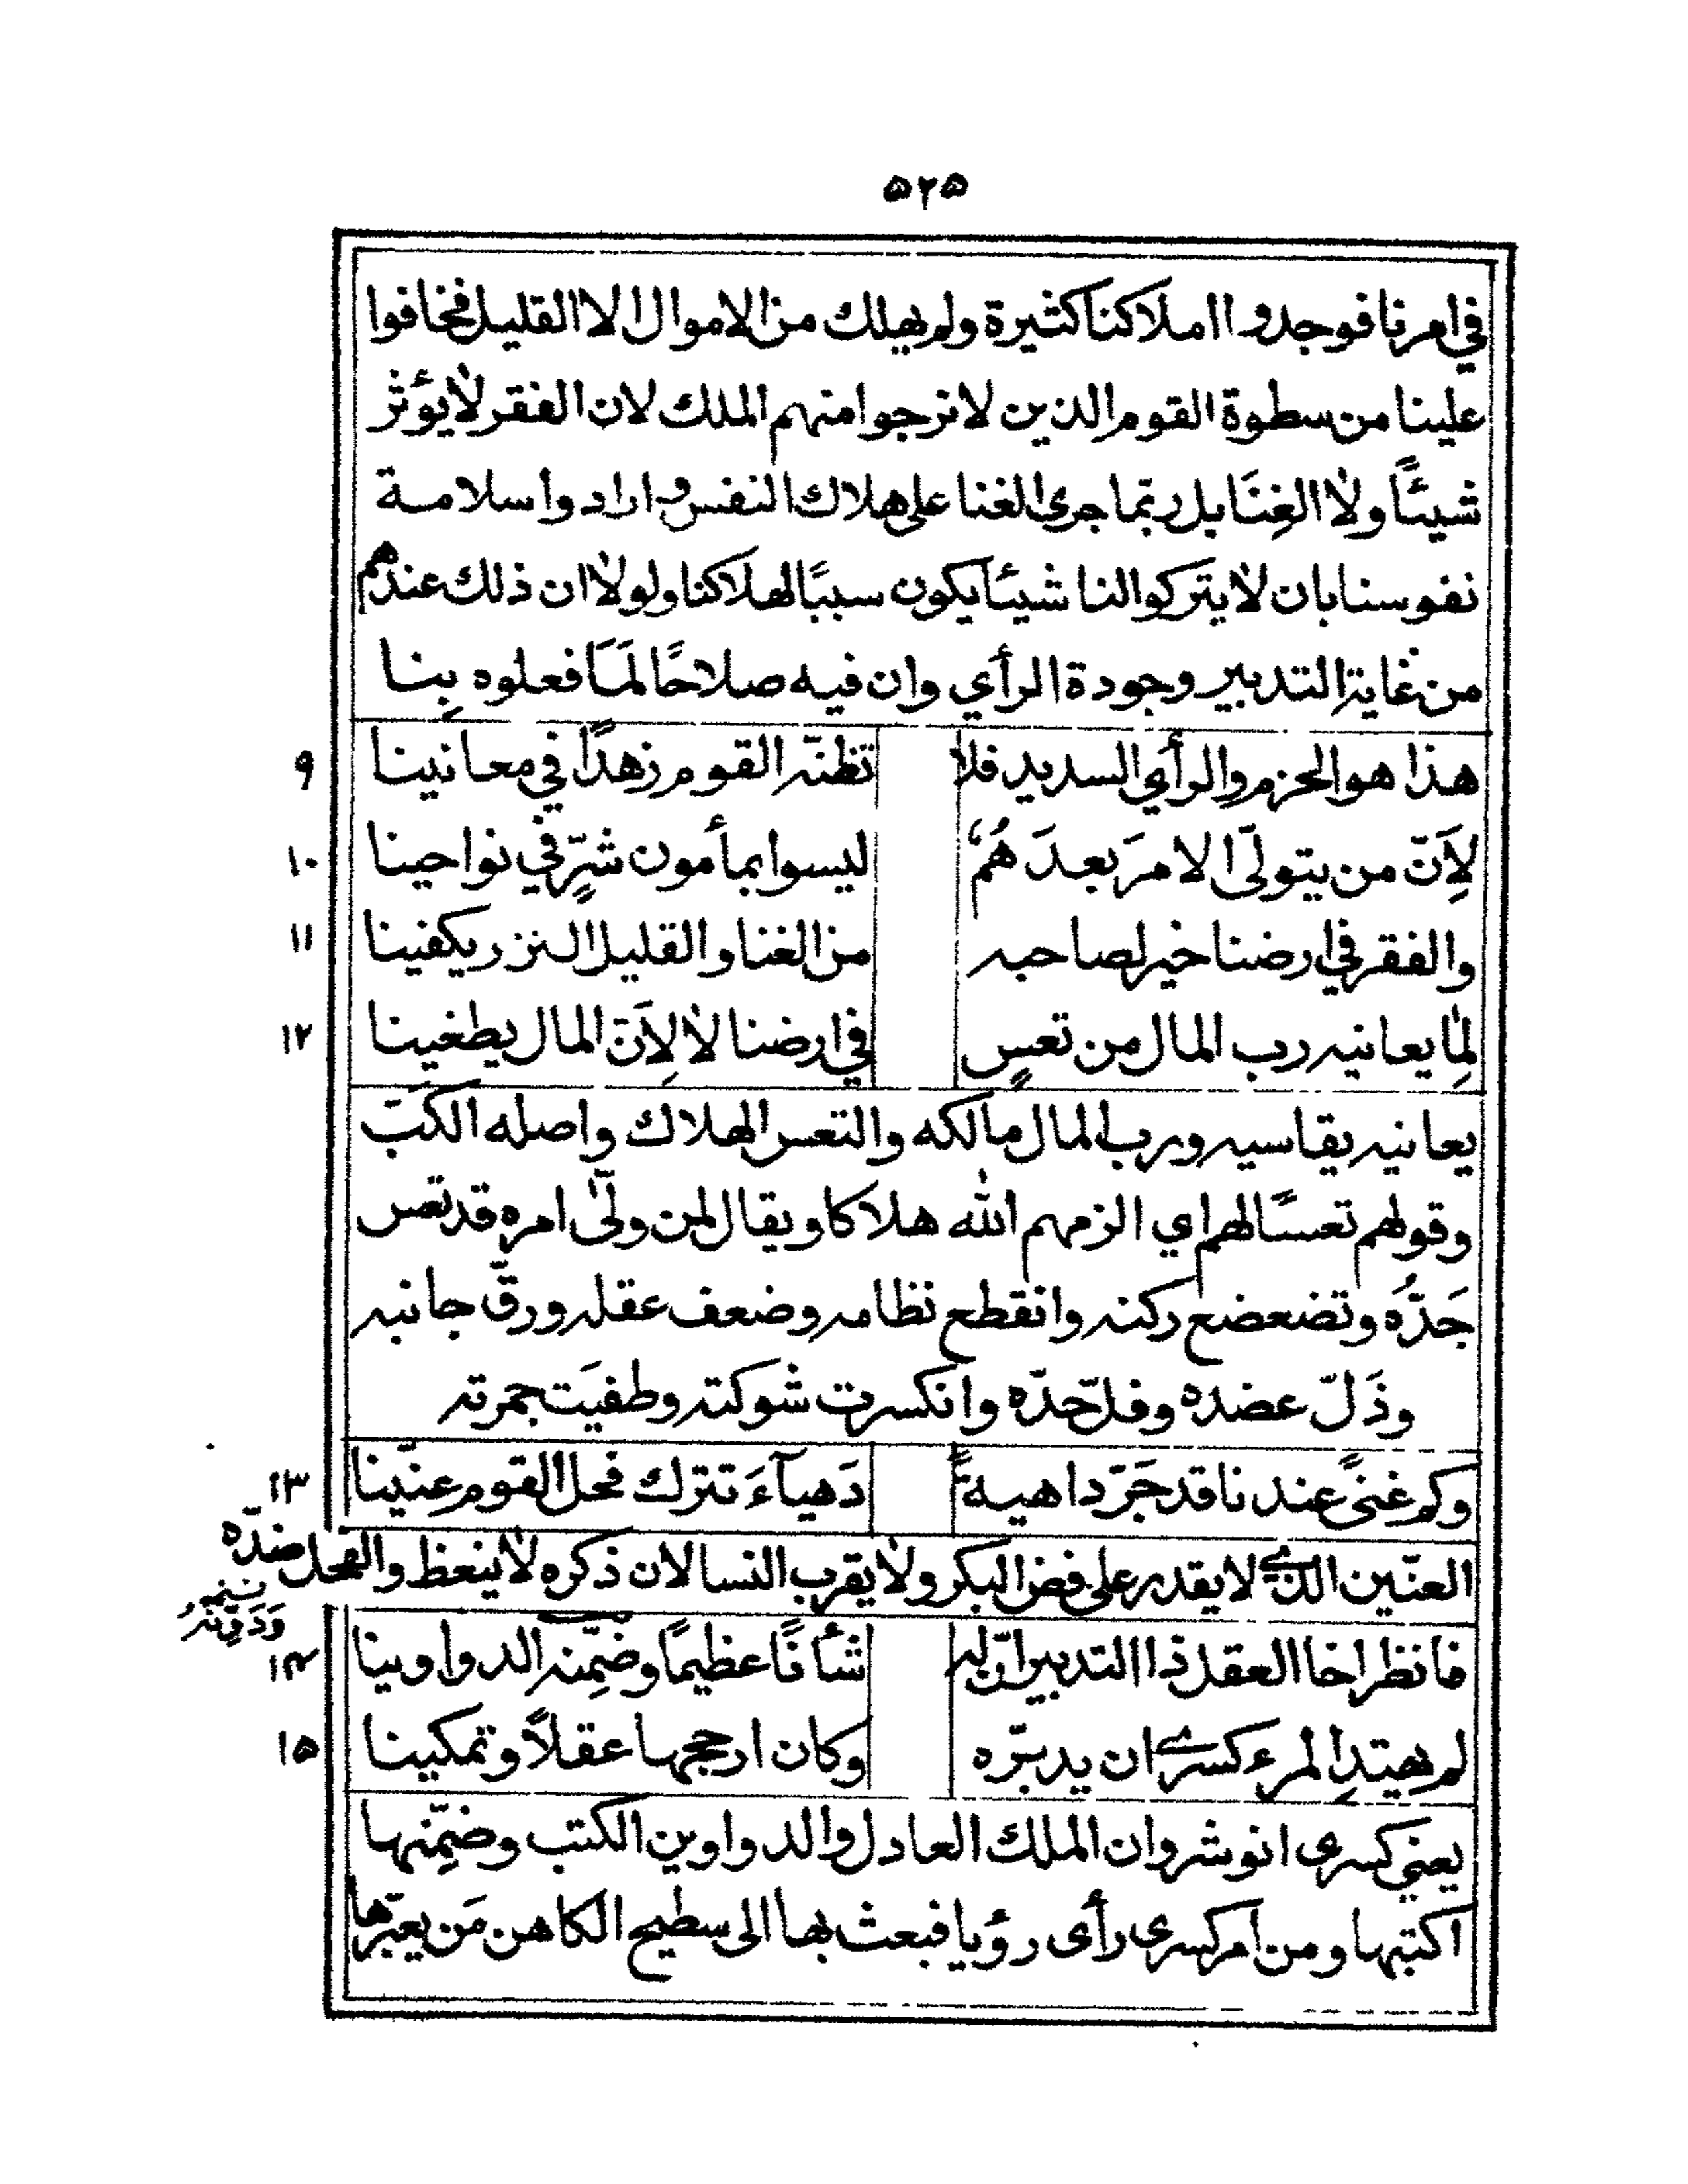 ٥٢٥
في امرنا فوجدوا املاكنا كثيرة ولم يهلك من الاموال الا القليل فخافوا
علينا من سطوة القوم الذين لا نرجوا منهم الملك لان الفقر لا يؤثر
شيئًا ولا الغِنَا بل ربّما جرى الغنا على هلاك النفس وارادوا سلامة
نفوسنا بان لا يتركوا لنا شيئًا يكون سببًا لهلاكنا ولولا ان ذلك عندهم
من غاية التدبير وجودة الرأي وان فيه صلاحًا لَمَا فعلوه بِنا
هذا هو الحزم والرأي السديد فلا تظنّه القوم زهدًا في معانينا ٩
لِأَنّ من يتولّى الامرَ بعدَ هُمُ ليسوا بمأمون شرٍّ في نواحينا ١٠
والفقر في ارضنا خير لصاحبه من الغنا والقليل النزر يكفينا ١١
لِمَا يعانيه رب المال من تعسٍ في ارضنا لا لِأَنّ المال يطغينا ١٢
يعانيه يقاسيه ورب المال مالكه والتعس الهلاك واصله الكَبّ
وقولهم تعسًا لهم اي الزمهم الله هلاكا ويقال لمن ولّى امره قد تعس
جَدُّه وتضعضع ركنه وانقطع نظامه وضعف عقله ورقّ جانبه
وذَلّ عضده وفلّ حدّه وانكسرت شوكته وطفيَت جمرته
وكم غنىً عندنا قد جَرّ داهيةً دَهيآءَ تترك فحل القوم عنّينا ١٣
العنّين الذي لا يقدر على فض البكر ولا يقرب النسا لان ذكره لا ينعظ والفحل ضدّه
وَدَوِّنه
فانظر اخا العقل ذا التدبير انّ له شأنًا عظيمًا وضمِّنه الدواوينا ١٤
لم يهتدِ المرء كسرى ان يدبّره وكان ارجحها عقلًا وتمكينا ١٥
يعني كسرى انوشروان الملك العادل والدواوين الكتب وضمِّنها
اكتبها ومن امر كسرى رأى رؤيا فبعث بها الى سطيح الكاهن مَن يعبّرها